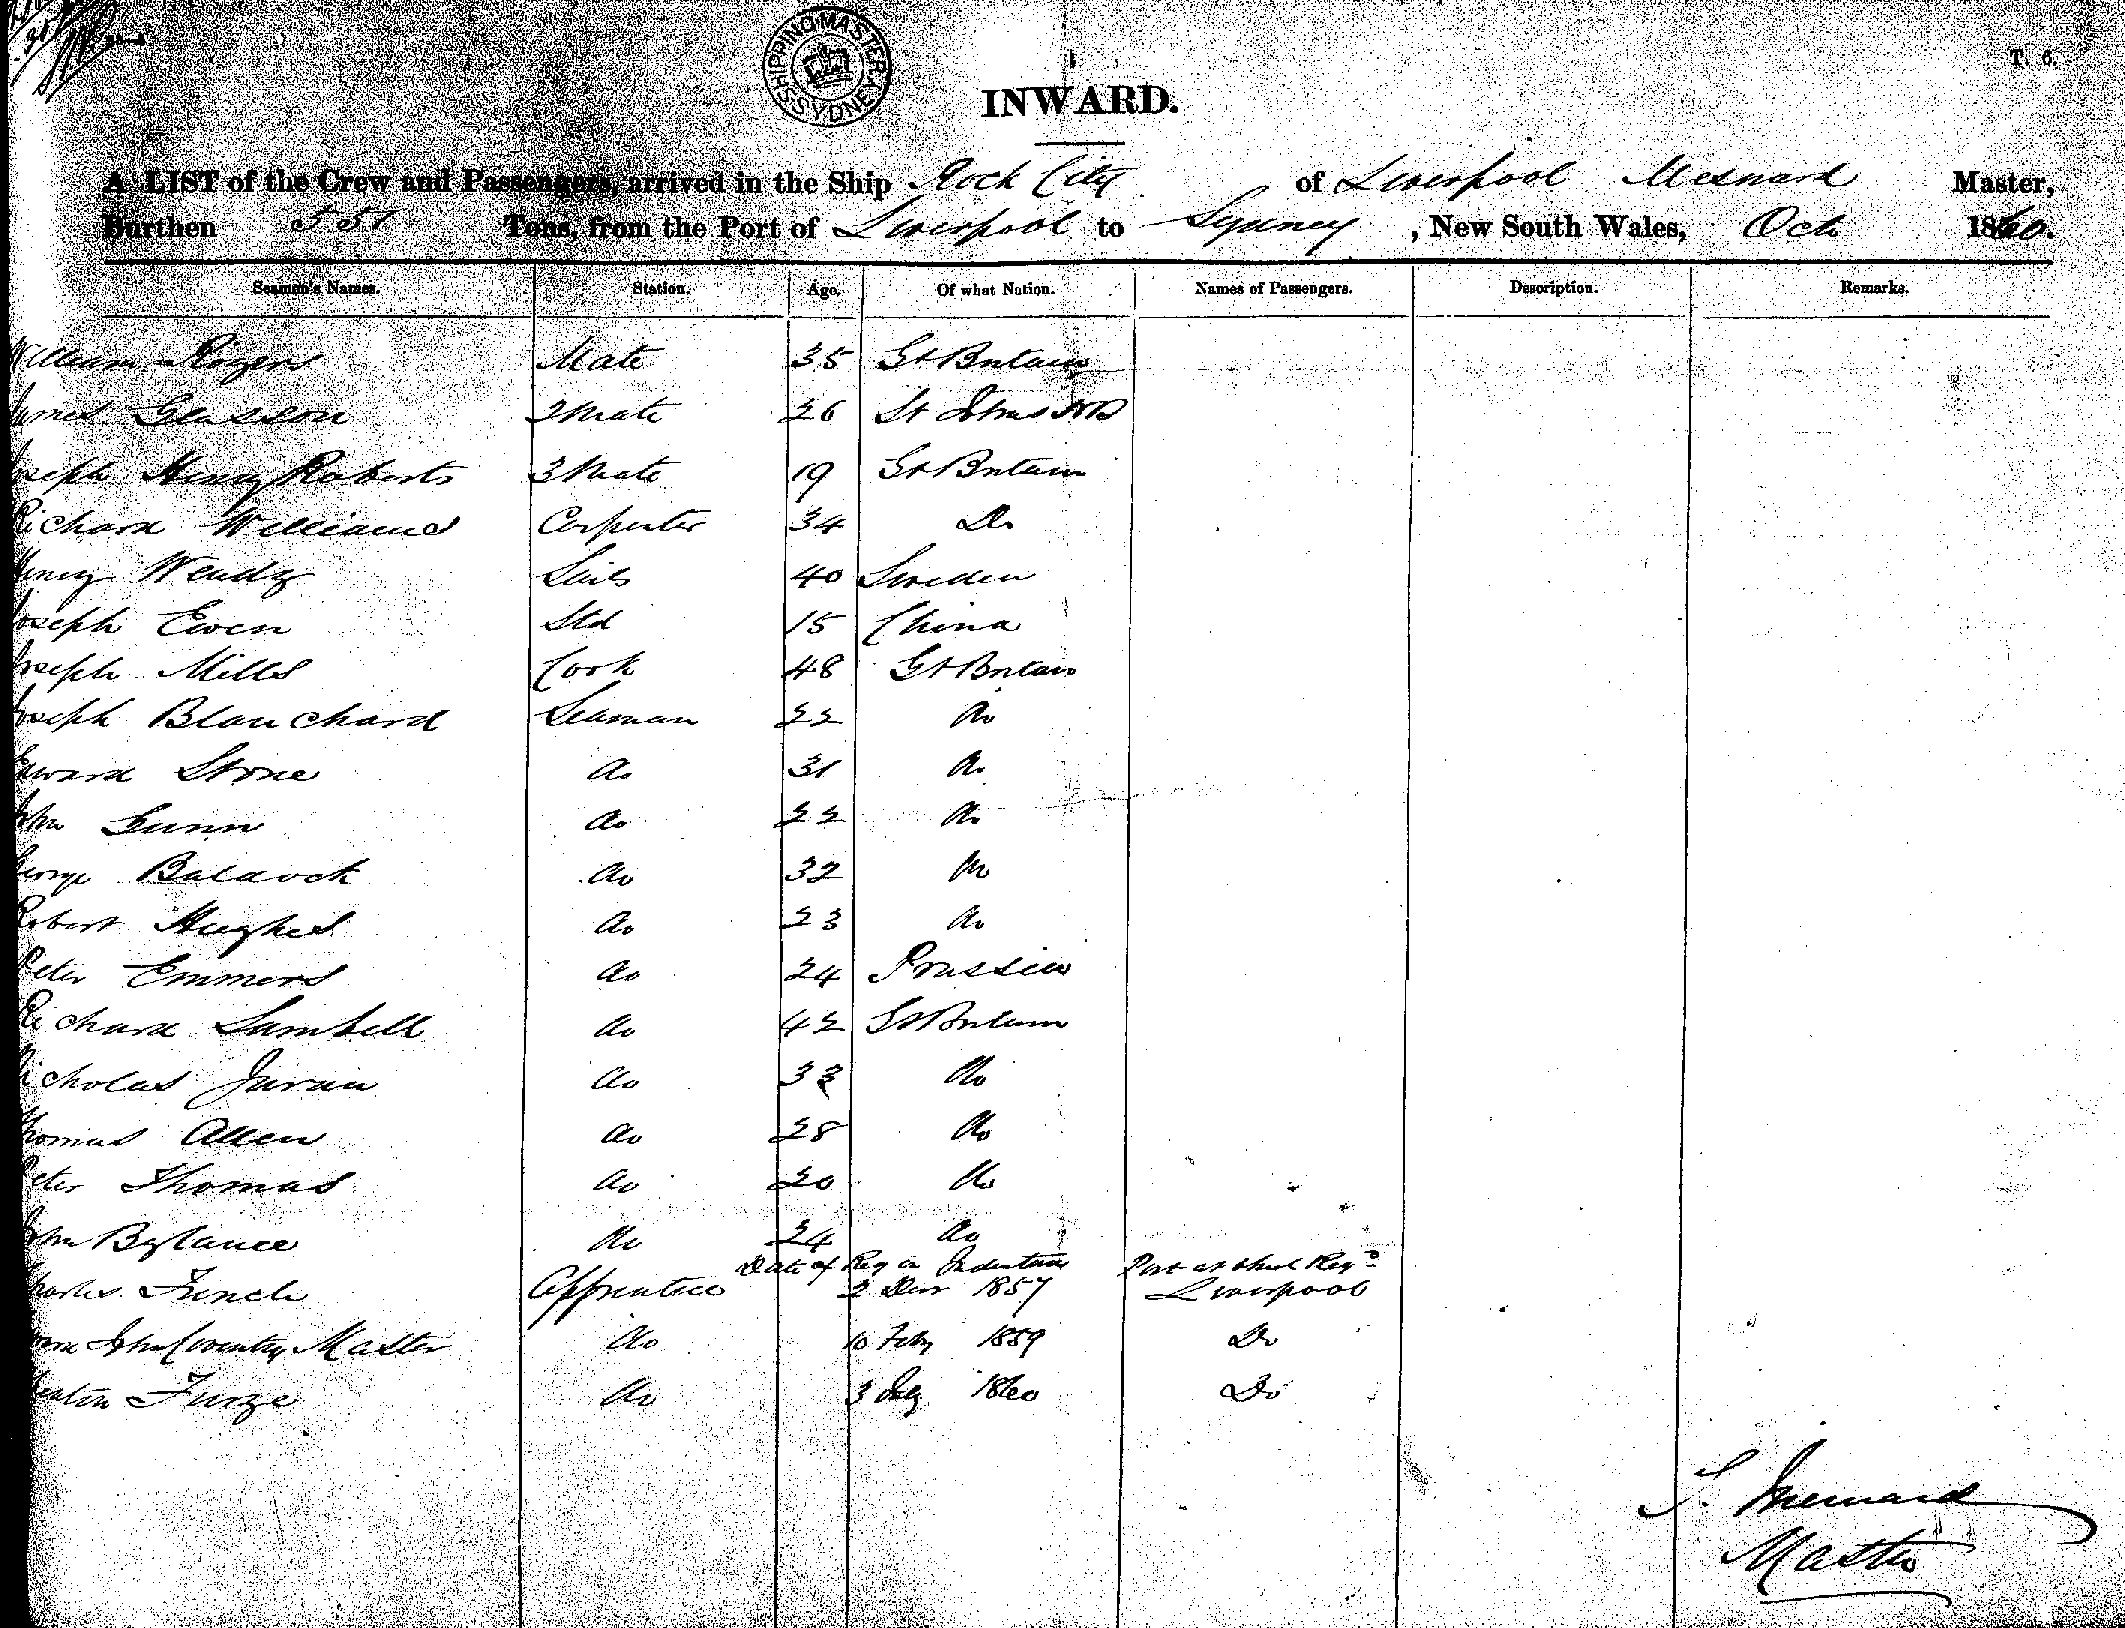 SHIPPING MASTERS SYDNEY
T. 6.
INWARD.
A LIST of the Crew and Passengers, arrived in the Ship Rock City of Liverpool Mesnard Master,
Burthen 551 Tons, from the Port of Liverpool to Sydney, New South Wales, Oct 1860.
Seaman's Names. Station. Age. Of what Nation. Names of Passengers. Description. Remarks.
William Rogers Mate 35 Gt Britain
James Glasson 2 Mate 26 St Johns NB
Joseph Henry Roberts 3 Mate 19 Gt Britain
Richard Williams Carpenter 34 Do
Henry Wendy Sails 40 Sweden
Joseph Ewen Std 15 China
Joseph Mills Cook 48 Gt Britain
Joseph Blanchard Seaman 22 Do
Edward Stone Do 31 Do
John Gunn Do 22 Do
George Baldock Do 32 Do
Robert Hughes Do 23 Do
Peter Emmers Do 24 Prussia
Richard Lambell Do 42 Gt Britain
Nicholas Juran Do 33 Do
Thomas Allen Do 28 Do
Peter Thomas Do 20 Do
John Bylance Do 24 Do
Date of Reg in Indenture Port at which Regd
Charles French Apprentice 2 Decr 1857 Liverpool
John Coventry Master Do 10 Feby 1859 Do
Furze Do 3 July 1860 Do
Mesnard
Master